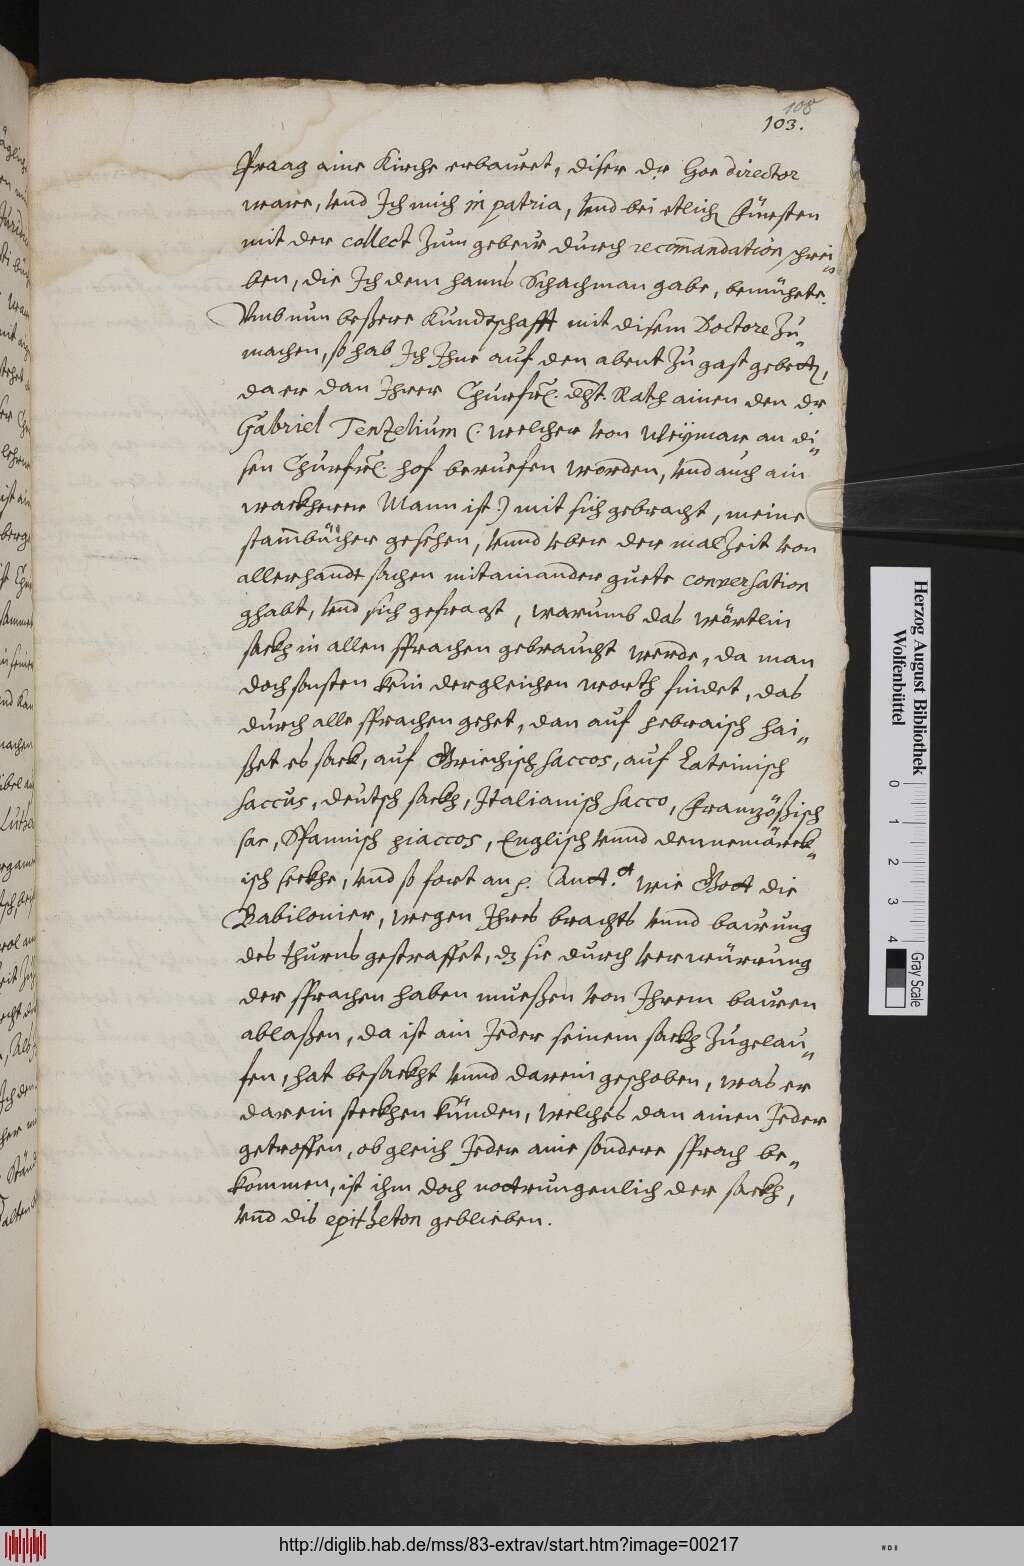 108
103.
Praag aine Kirche erbauet, diser dr. Hoe director
ware, vnd Ich mich in patria, vnd bei etlich Fürsten
mit der collect zum gebeur durch recom̃andation schrei„
ben, die Ich dem Hanns Schachman gabe, bemühete.
Vmb nun beßere Kundtschafft mit disem Doctore zu„
machen, so hab Ich Ihne auf den abent zu gast gebett,
da er dan Ihrer Churfrl. dht. Rath ainen den dr.
Gabriel Tenzelium (: welcher von Weÿmar an di„
sen Churfrl. hof beruefen worden, vnd auch ain
wackherer Mann ist :) mit sich gebracht, meine
stam̃büecher gesehen, vnnd vber der malzeit von
allerhandt sachen mitainander guete conversation
ghabt, vnd sich gefragt, warumb das wörtlin
sackh in allen sprachen gebraucht werde, da man
doch sonsten kein dergleichen worth findet, das
durch alle sprachen gehet, dan auf hebraisch hai„
ßet es sack, auf Griechisch saccos, auf Lateinisch
saccus, deutsch sackh, Italianisch sacco, Französisch
sac, Spannisch piaccos, Englisch vnnd dennemärck„
isch seckhe, vnd so fort an wie Gott die
Babilonier, wegen Ihres brachts vnnd bauung
des thurns gestraffet, dz sie durch verwürrung
der sprachen haben mueßen von Ihrem bauen
ablaßen, da ist ain Jeder seinem sackh zugelau„
fen, hat besackht vnnd darein geschoben, was er
darein steckhen künden, welches dan ainen Jeder
getroffen, obgleich Jeder aine sondere sprach be„
kommen, ist ihm doch nottrungenlich der sackh,
vnd dis epitheton geblieben.
Herzog August Bibliothek
Wolfenbüttel
0 1 2 3 4
Gray Scale
http://diglib.hab.de/mss/83-extrav/start.htm?image=00217